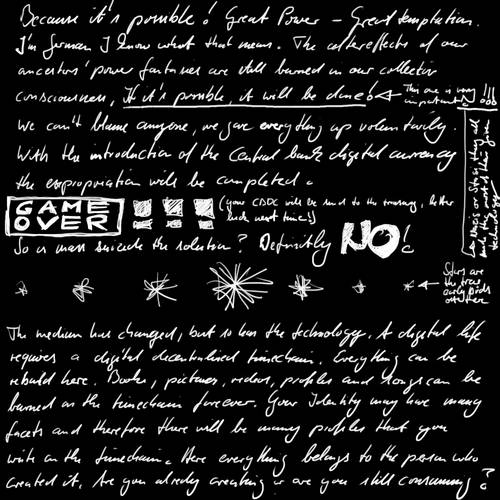 Because it's possible! Great Power – Great temptation.
I'm German I know what that means. The aftereffects of our
ancestors' power fantasies are still burned in our collective
consciousness, If it's possible, it will be done!
This one is very important
!!!
We can't blame anyone, we gave everything up voluntarily.
With the introduction of the Central bank digital currency
the expropriation will be completed.
GAME OVER !!!
(your CBDC will be sent to the treasury, better luck next time!)
So is mass suicide the solution? Definitly NO!
Stars are the true early birds
The medium has changed, but so has the technology. A digital life
requires a digital decentralised timechain. Everything can be
rebuild here. Books, pictures, videos, profiles and songs can be
burned on the timechain forever. Your Identity may have many
facets and therefore there will be many profiles that you
write on the timechain. Here everything belongs to the person who
created it. Are you already creating or are you still consuming?